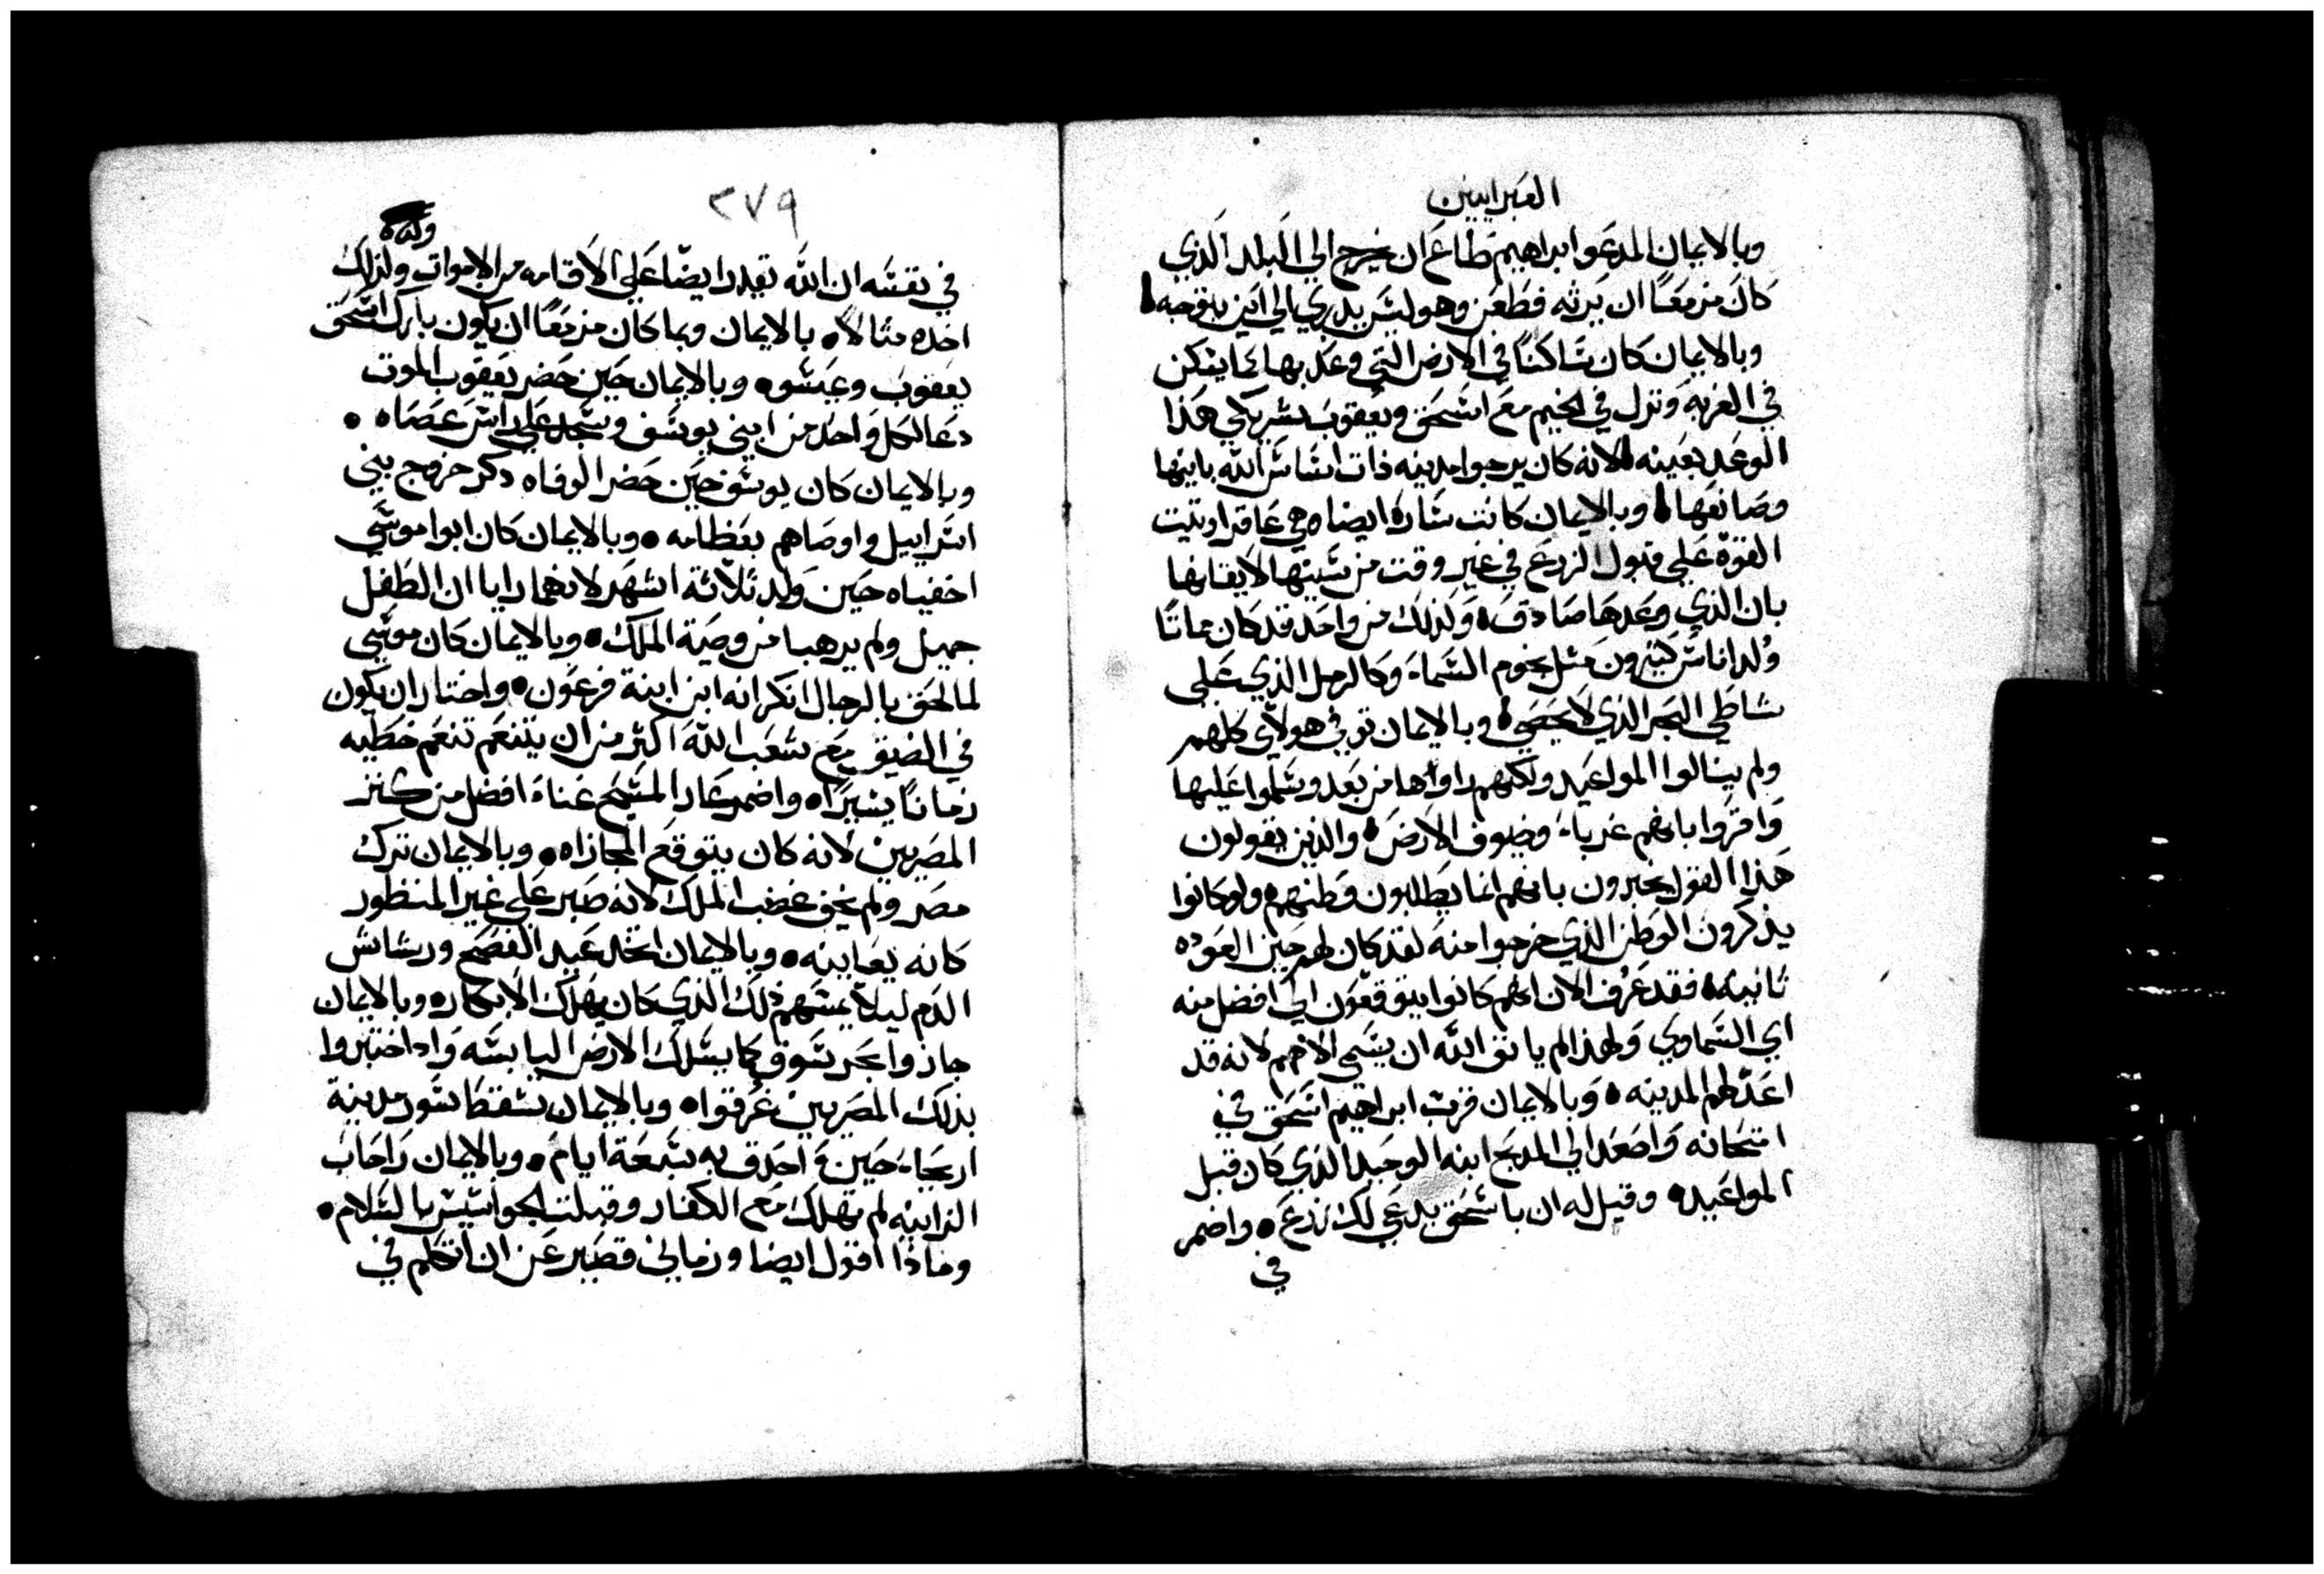 العبرانيين
وبالايمان المدعو ابراهيم طاع ان يخرج الي البلد الذي
كان مزمعًا ان يرثه فظعن وهو ليس يدري الي اين يتوجه
وبالايمان كان ساكنًا في الارض التي وعد بها كما يسكن
في الغربه ونزل في الخيم مع اسحق ويعقوب شريكي هذا
الوعد بعينه لانه كان يرجوا مدينه ذات اساس الله بانيها
وصانعها وبالايمان كانت ساره ايضا هي عاقر اوتيت
القوة علي قبول الزرع في غير وقت من سنيها لايقانها
بان الذي وعدها صادق ولذلك من واحد قد كان مماتًا
ولد اناس كثيرون مثل نجوم السماء وكالرمل الذي علي
شاطي البحر الذي لا يحصي وبالايمان توفي هولاي كلهم
ولم ينالوا المواعيد ولكنهم راواها من بعد وسلموا عليها
واقروا بانهم غرباء وضيوف الارض والذين يقولون
هذا القول يخبرون بانهم انما يطلبون وطنهم ولو كانوا
يذكرون الوطن الذي خرجوا منه لقد كان لهم حين العوده
ثانيه فقد عرف الان انهم كانوا يتوقعون الي افضل منه
اي السماوي ولهذا لم يانق الله ان يسمي الاههم لانه قد
اعد لهم المدينه وبالايمان قرب ابراهيم اسحق في
امتحانه واصعد الي المدبح ابنه الوحيد الذي كان قبل
المواعيد وقيل له ان باسحق يدعي لك زرع واضمر
في
٢٧٩
في نفسه ان الله يقدر ايضًا علي الاقامه من الاموات ولذلك
اخده مثالاً بالايمان وبما كان مزمعًا ان يكون بارك اسحق
يعقوب وعيسو وبالايمان حين حضر يعقوب الموت
دعا لكل واحد من ابني يوسف وسجد علي راس عصاه
وبالايمان كان يوسف حين حضر الوفاه دكر خروج بني
اسراييل واوصاهم بعظامه وبالايمان كان ابوا موسي
اخفياه حين ولد ثلاثة اشهر لانهما رايا ان الطفل
جميل ولم يرهبا من وصية الملك وبالايمان كان موسي
لما لحق بالرجال انكر انه ابن ابنة فرعون واختار ان يكون
في الضيق مع شعب الله اكثر من ان يتنعم تنعم خطيه
زمانًا يسيرًا واضمر عار المسيح غناء افضل من كنز
المصريين لانه كان يتوقع المجازاه وبالايمان ترك
مصر ولم يخف غضب الملك لانه صبر علي غير المنظور
كانه يعاينه وبالايمان اتخد عيد الفصح ورشاش
الدم ليلا يمسهم ذلك الذي كان يهلك الابكار وبالايمان
جازوا بحر سوف كما يسلك الارض اليابسه وادا اختبروا
بذلك المصريين غرقوا وبالايمان سقط سور مدينة
اريحاء حين احدق به سبعة ايام وبالايمان راحاب
الزانيه لم تهلك مع الكفار وقبلت الجواسيس بالسلام
وماذا اقول ايضا وزماني قصير عن ان اتكلم في